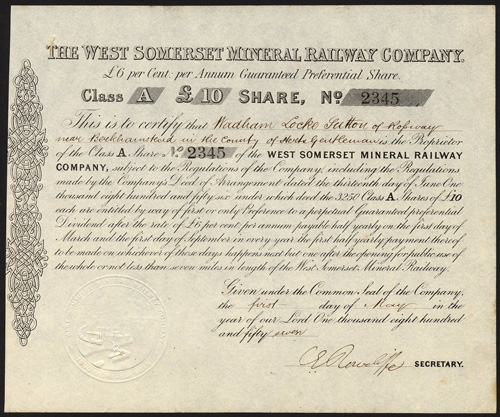 THE WEST SOMERSET MINERAL RAILWAY COMPANY.
£6 per Cent: per Annum Guaranteed Preferential Share.
Class A £10 SHARE, No 2345
This is to certify that Wadham Locke Sutton of Rossway
near Berkhamstead in the County of Herts Gentleman is the Proprietor
of the Class A Share No 2345 of the WEST SOMERSET MINERAL RAILWAY
COMPANY, subject to the Regulations of the Company, including the Regulations
made by the Company's Deed of Arrangement dated the thirteenth day of June One
thousand eight hundred and fifty six under which deed the 3250 Class A Shares of £10
each are entitled by way of first or only Preference to a perpetual Guaranteed preferential
Dividend after the rate of £6 per cent per annum payable half yearly on the first day of
March and the first day of September in every year the first half yearly payment thereof
to be made on whichever of those days happens next but one after the opening for public use of
the whole or not less than seven miles in length of the West Somerset Mineral Railway.
Given under the Common Seal of the Company,
the first day of May in the
year of our Lord One thousand eight hundred
and fifty seven
SECRETARY.